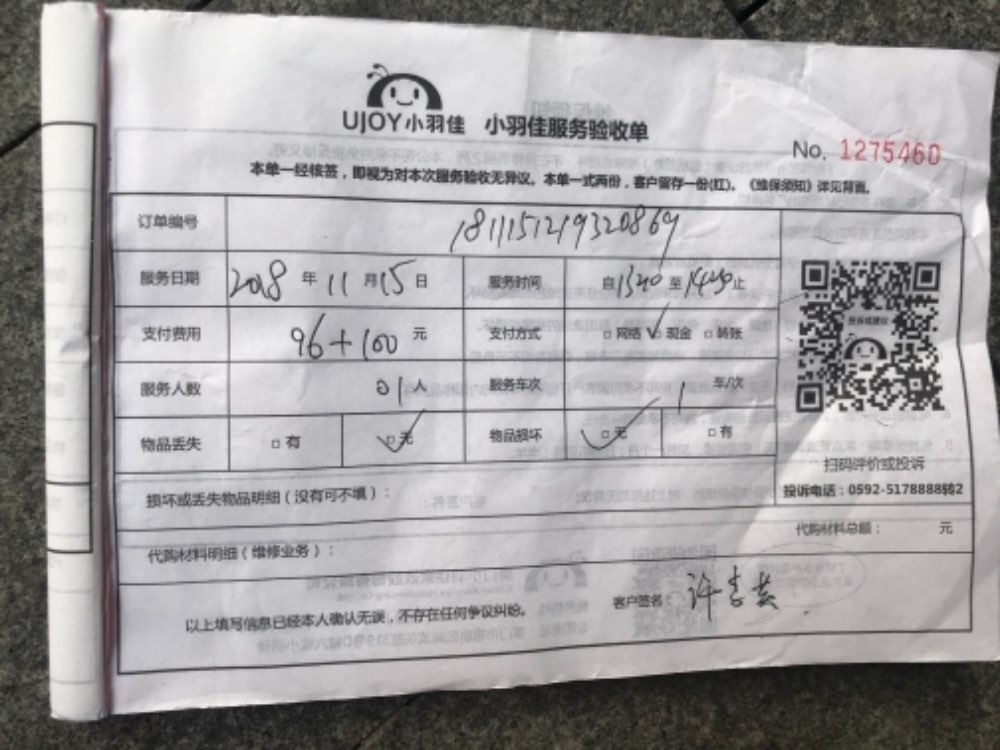 UJOY小羽佳 小羽佳服务验收单
No. 1275460
本单一经核签，即视为对本次服务验收无异议。本单一式两份，客户留存一份(红)。《维保须知》详见背面。
订单编号 1811151219320869
服务日期 2018 年 11 月 15 日 服务时间 自 1320 至 1420 止
支付费用 96+100 元 支付方式 □网络 ✓现金 □转账
服务人数 01 人 服务车次 1 车/次
物品丢失 □有 ☑无 物品损坏 ☑无 □有
投诉或建议
扫码评价或投诉
损坏或丢失物品明细（没有可不填）：
投诉电话：0592-5178888
代购材料明细（维修业务）：
代购材料总额： 元
以上填写信息已经本人确认无误，不存在任何争议纠纷。
客户签名：许